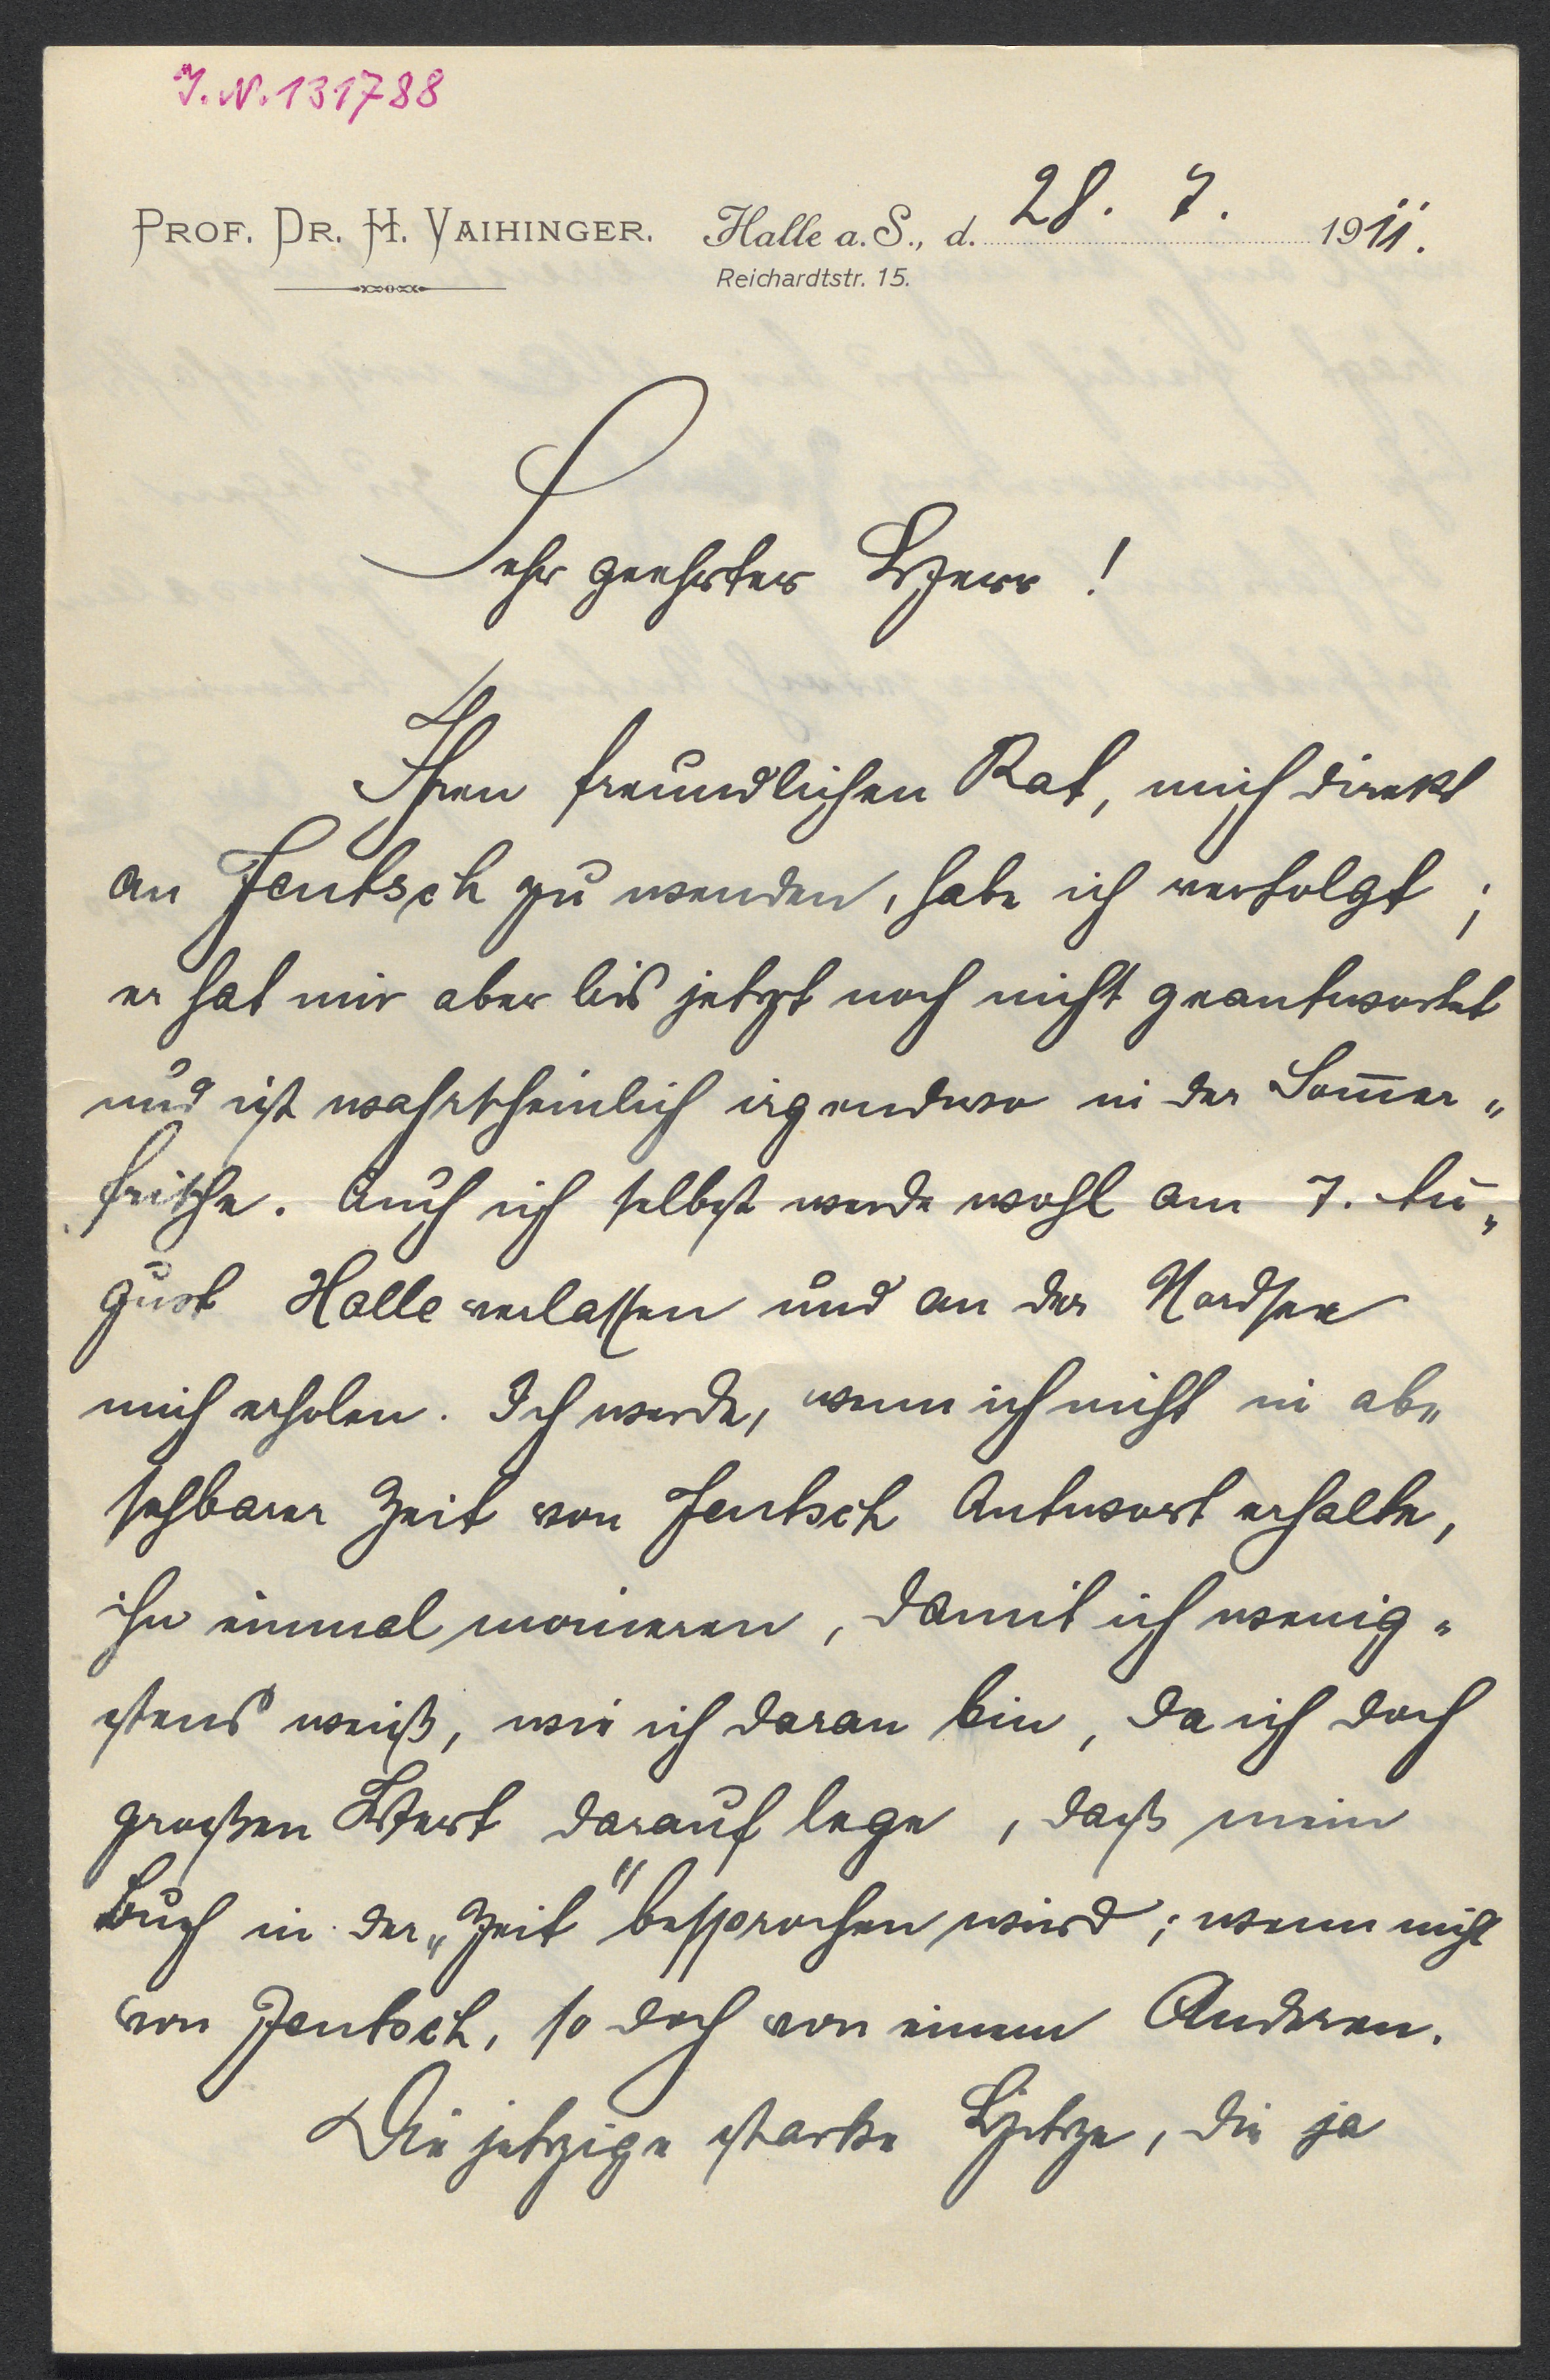 J.N.131788
PROF. DR. H. VAIHINGER. Halle a. S., d. 28. 7. 1911.
Reichardtstr. 15.
Sehr geehrter Herr!
Ihren freundlichen Rat, mich direkt
an Jentsch zu wenden, habe ich verfolgt;
er hat mir aber bis jetzt noch nicht geantwortet
und ist wahrscheinlich irgendwo in der Som̅er„
frische. Auch ich selbst werde wohl am 7. Au„
gust Halle verlassen und an der Nordsee
mich erholen. Ich werde, wenn ich nicht in ab„
sehbarer Zeit von Jentsch Antwort erhalte,
ihn einmal monieren, damit ich wenig„
stens weiß, wie ich daran bin, da ich doch
großen Wert darauf lege, daß mein
Buch in der „Zeit" besprochen wird; wenn nicht
von Jentsch, so doch von einem Anderen.
Die jetzige starke Hitze, die ja